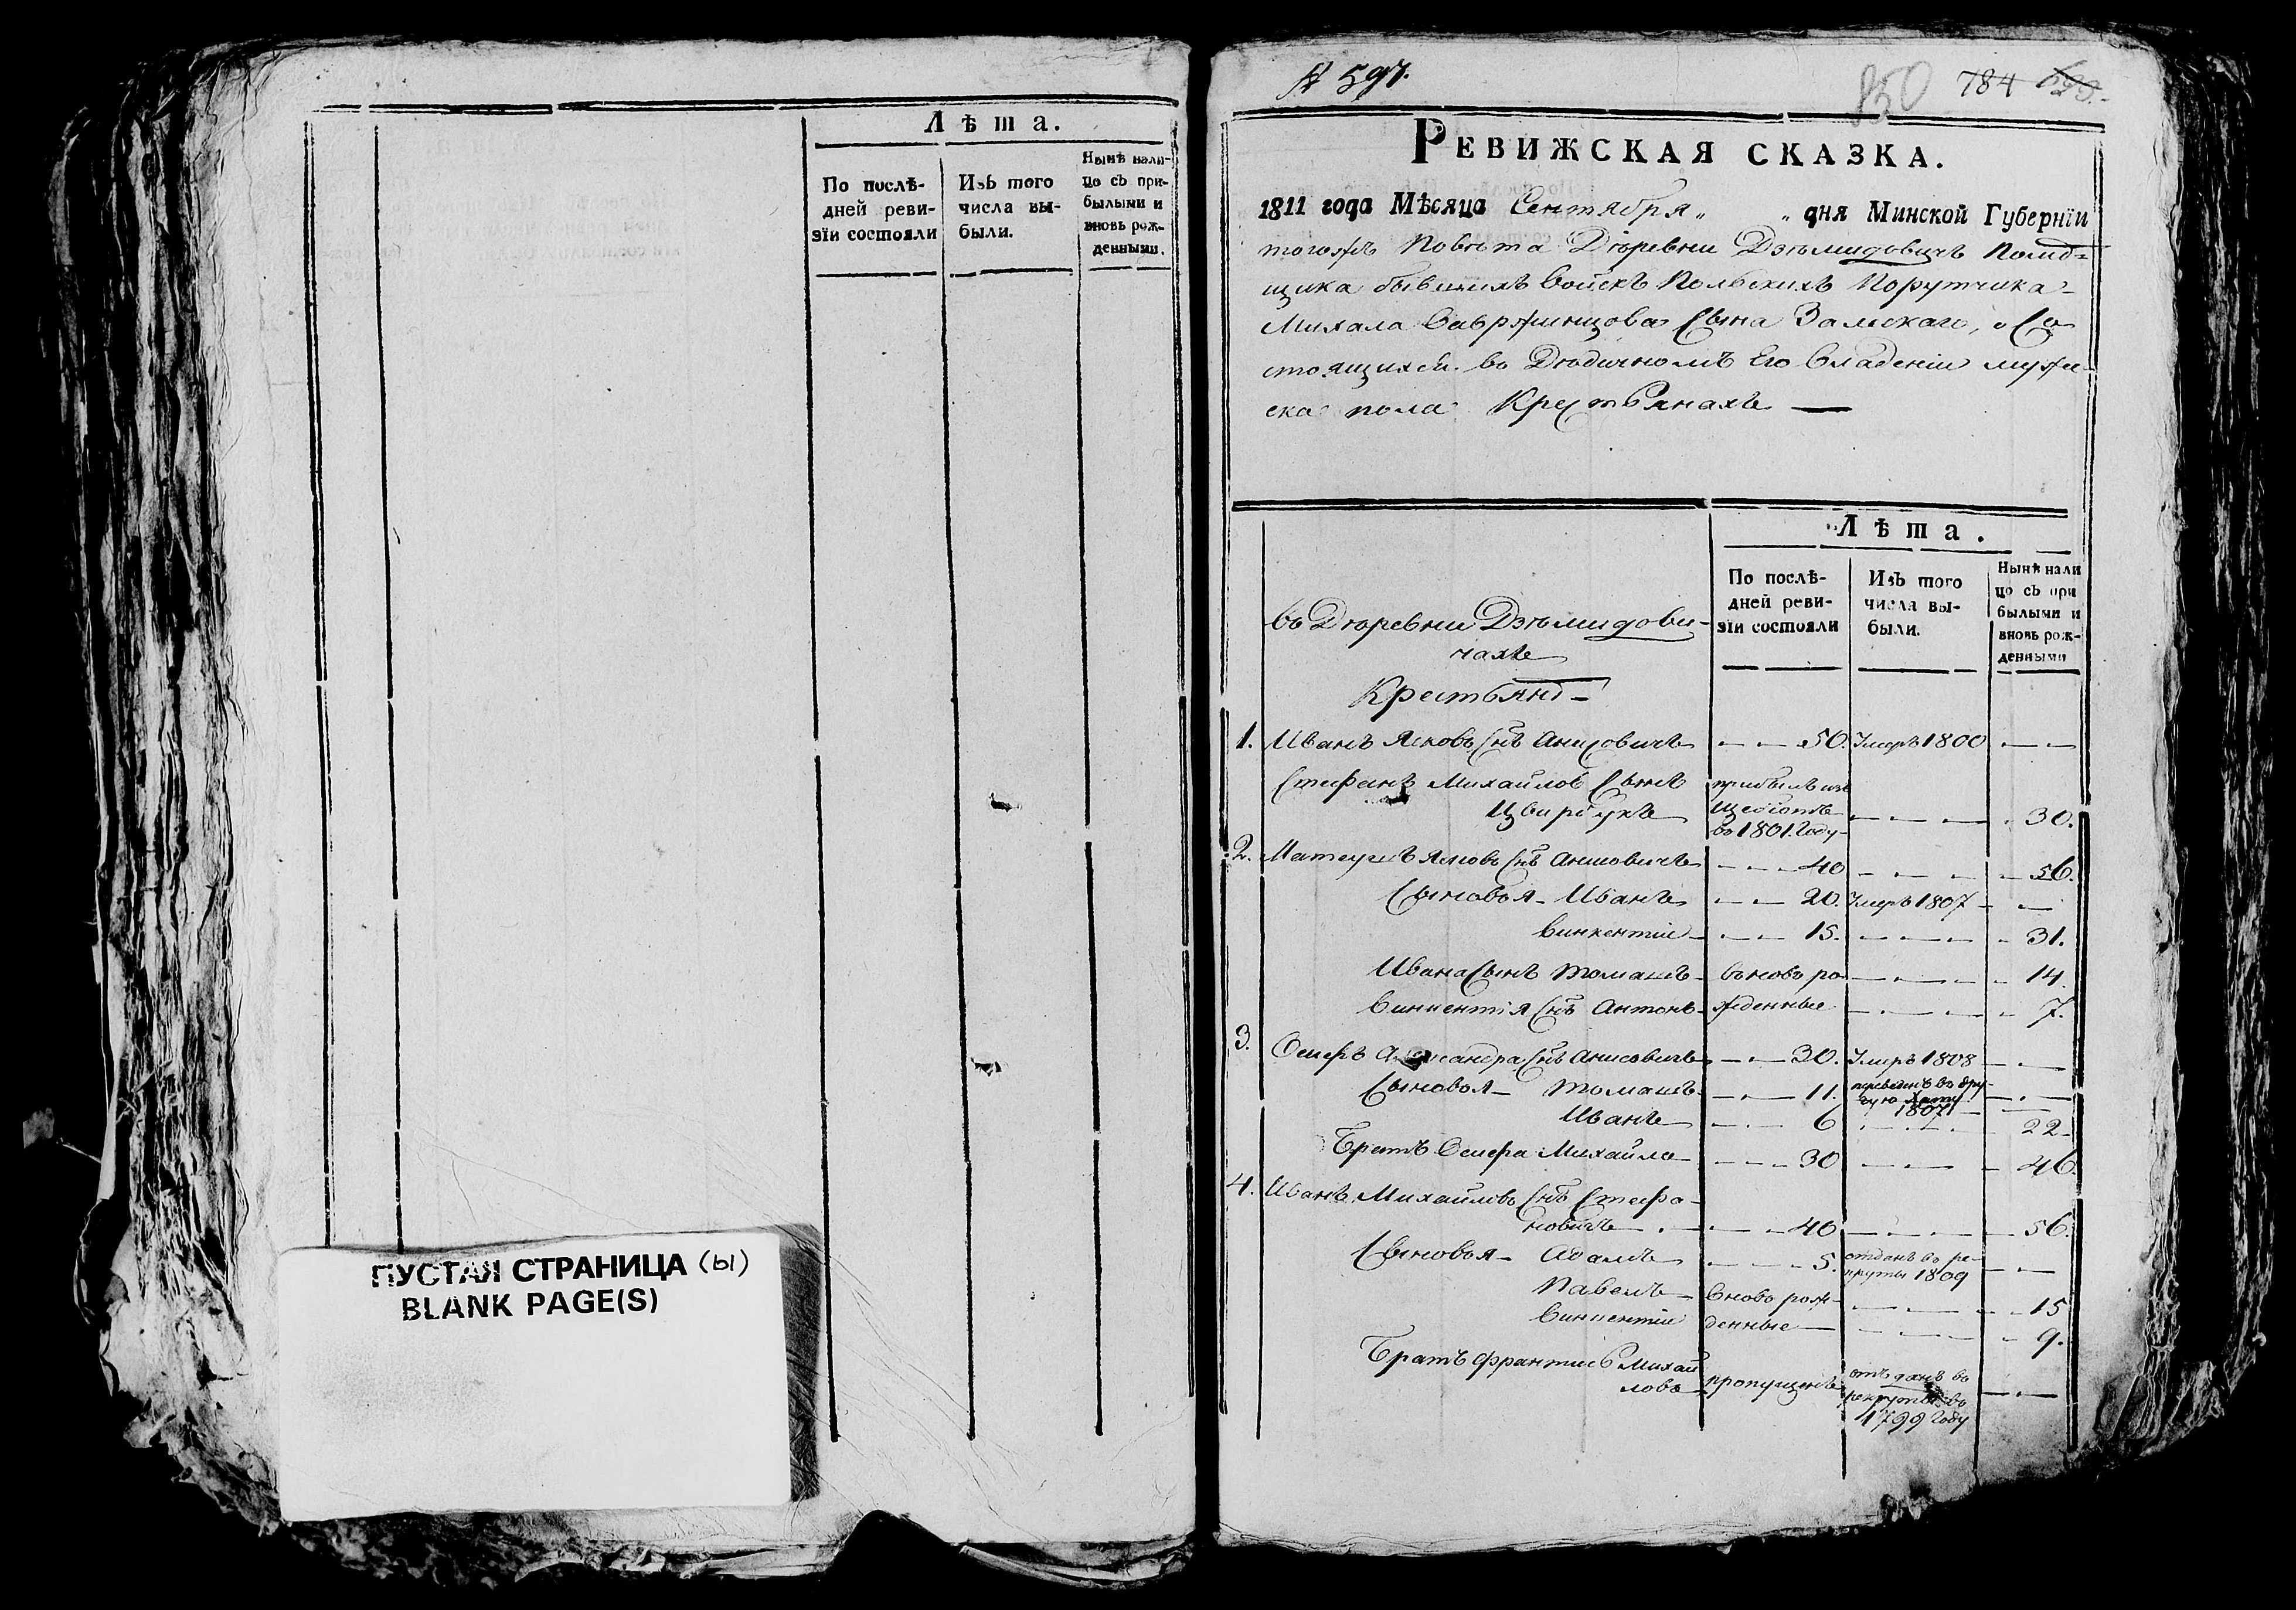 Лѣта.
По послѣ-
дней реви-
зїи состояли
Изъ того
числа вы-
были.
Нынѣ нали-
цо съ при-
былыми и
вновь рож-
денными.
ПУСТАЯ СТРАНИЦА (ы)
BLANK PAGE(S)
№ 597.
850 784
РЕВИЖСКАЯ СКАЗКА.
1811 года Мѣсяца Сентября „ „ дня Минской Губернїи
тогожъ Повѣта Деревни Дзѣмидовичъ Помѣ=
щика бывшихъ Войскъ Польскихъ Порутчика
Михала Вавржинцова Сына Замскаго, о Со
стоящихся во Дѣдичномъ Его Владеніи муже-
ска пола Крестьянахъ —
Лѣта.
По послѣ-
дней реви-
зїи состояли
Изъ того
числа вы-
были.
Нынѣ нали
цо съ при
былыми и
вновь рож-
денными
во Деревни Дзѣмидови-
чахъ
Крестьянъ
1. Иванъ Ясковъ Снъ Анисовичъ — 50. Умеръ 1800 — —
Стефанъ Михайловъ Сынъ прибылъ изъ
Цвирбукъ
во 1801. Году — 30.
2. Матеушъ Ясковъ Снъ Анисовичъ — 40 — 56.
Сыновья — Иванъ — 20. Умеръ 1807 —
Винкентіи — 15. — 31.
Ивана Сынъ Томашъ — вьново ро — 14.
Винцентія Снъ Антонъ — жденные — 7.
3. Осифъ Александра Снъ Анисовичъ — 30. Умеръ 1808 —
Сыновья — Томашъ — 11. переведенъ во дру-
гую хату
1807 —
Иванъ — 6 — 22
Братъ Осифа Михайло — 30 — 46.
4. Иванъ Михайловъ Снъ Стефа-
новичъ — 40 — 56.
Сыновья — Адамъ — 5. отданъ во ре-
круты 1809 —
Павелъ — вново рож- — 15
Винцентіи денные — 9.
Братъ Францишъ Михай
ловъ — пропущенъ отъданъ во
рекруты во
1799 Году —